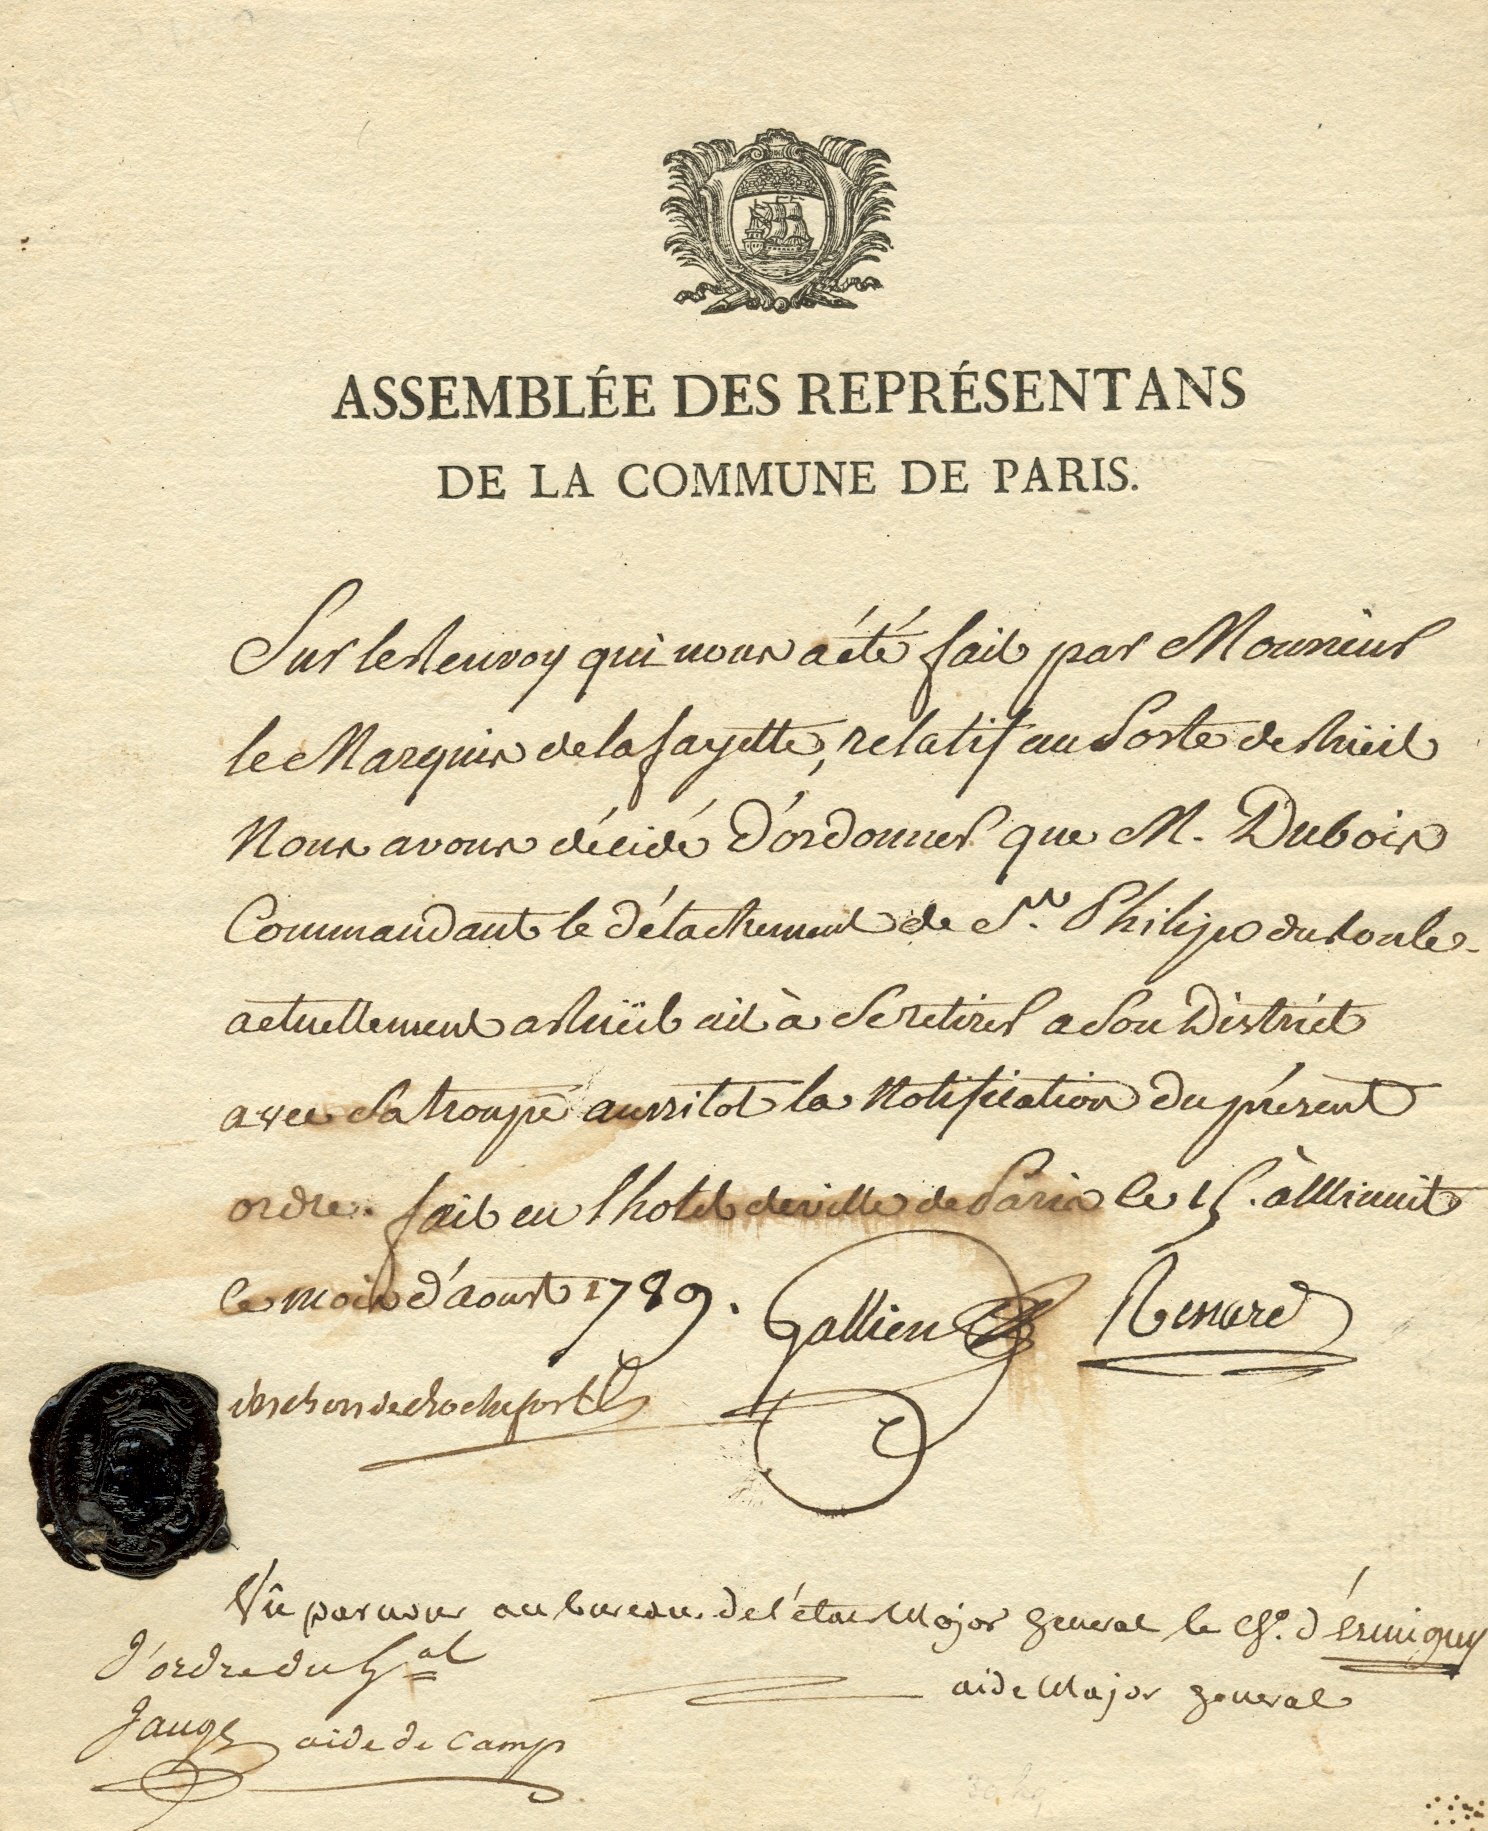 ASSEMBLÉE DES REPRÉSENTANS
DE LA COMMUNE DE PARIS.
Sur le Renvoy qui nous a été fait par Monsieur
le Marquis de lafayette, relatif au Poste de Rüeil
Nous avons décidé D'ordonner que M. Dubois
Commandant le Détachement de St. Philipe du Roule
actuellement a Rüeil ait à Se retirer a Son District
avec Sa troupe aussitot la Notification Du présent
ordre. fait en l'hotel de ville de Paris le 15. à Minuit
le mois d'aoust 1789.
Gallien Renard
de Rochefort
Vû par nous au bureau de l'état Major general le Ch.er d'Ermigny
aide Major general
D'ordre du G.al
Jauge aide de camp